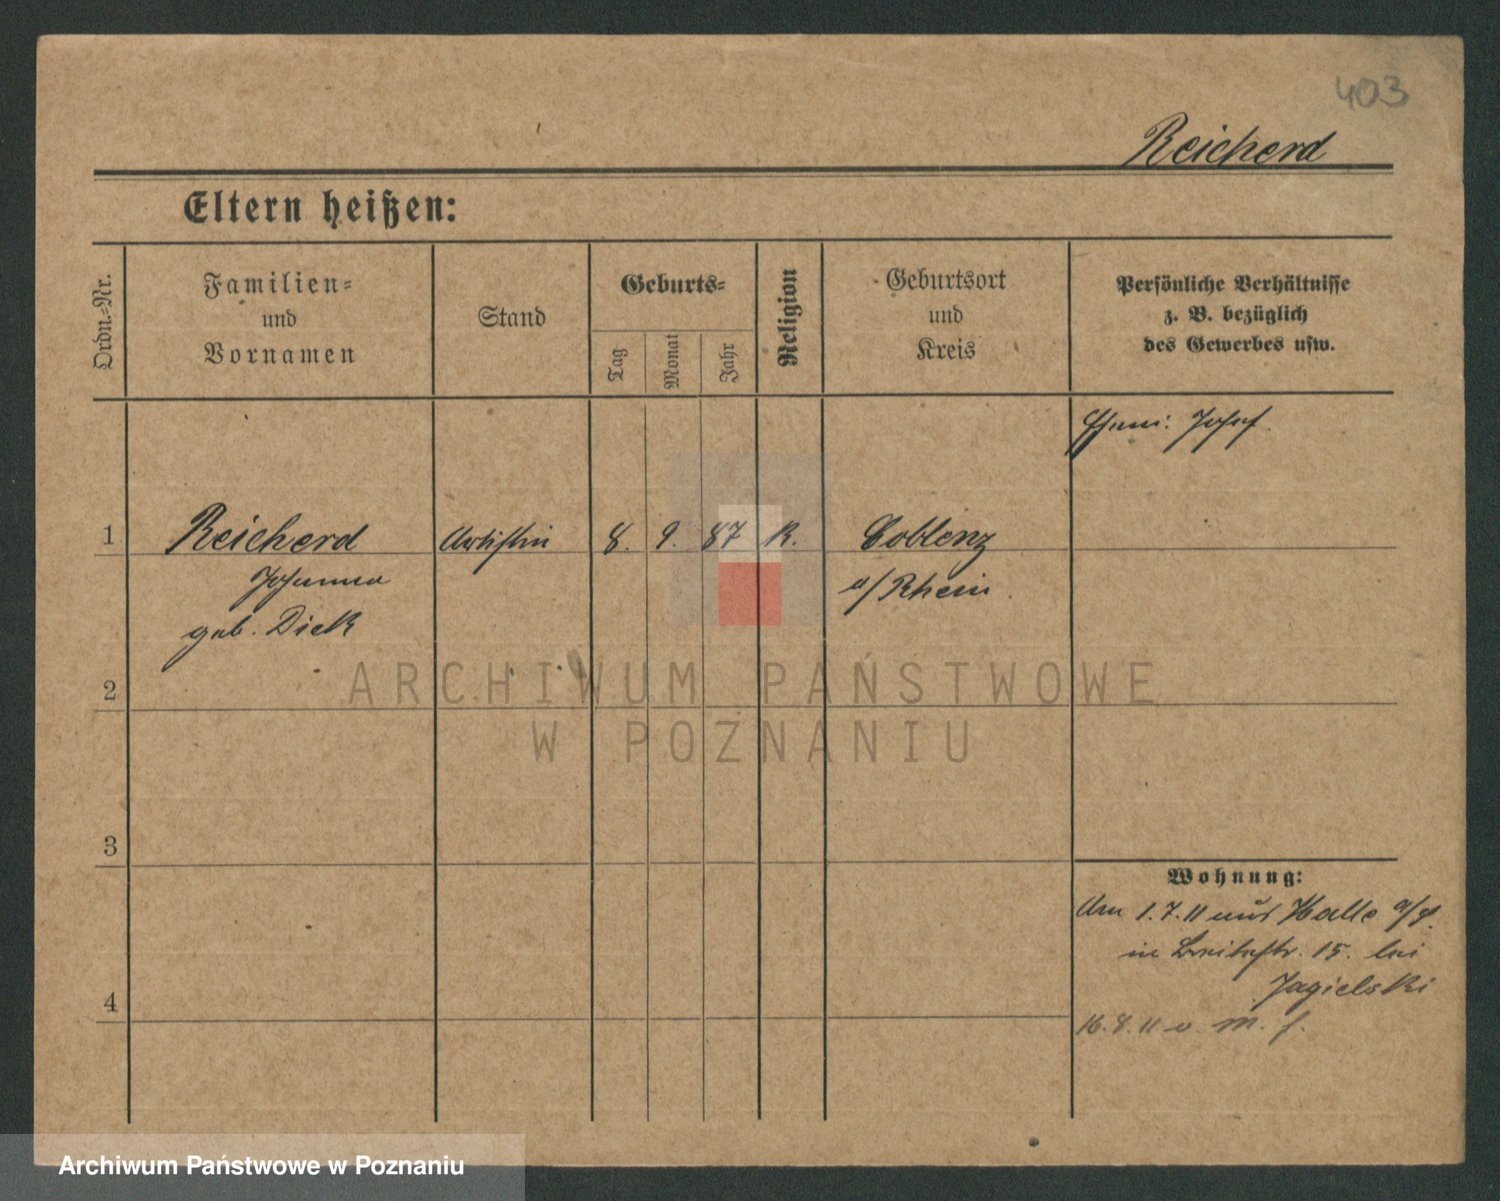 403
Reicherd
Eltern heißen:
Ordn.-Nr.
Familien-
und
Vornamen
Stand
Geburts-
Tag
Monat
Jahr
Religion
Geburtsort
und
Kreis
Persönliche Verhältnisse
z. B. bezüglich
des Gewerbes usw.
Ehem: Josef.
1
Reicherd
Artistin
8.
9.
87
K.
Coblenz
Johanna
a/Rhein.
geb. Dick
2
ARCHIWUM PAŃSTWOWE
W POZNANIU
3
Wohnung:
Am 1.7.11 aus Halle a/S.
in Breitestr. 15. bei
Jagielski
4
16.8.11 v
Archiwum Państwowe w Poznaniu